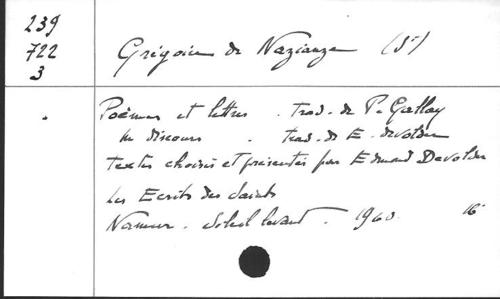 239
722
3
Grégoire de Nazianze (St)
Poèmes et lettres . trad. de P. Gallay
les discours . trad. de E. Devolder
textes choisis et présentés par Edmond Devolder
Les Ecrits des Saints
Namur . Soleil levant . 1960. 16°